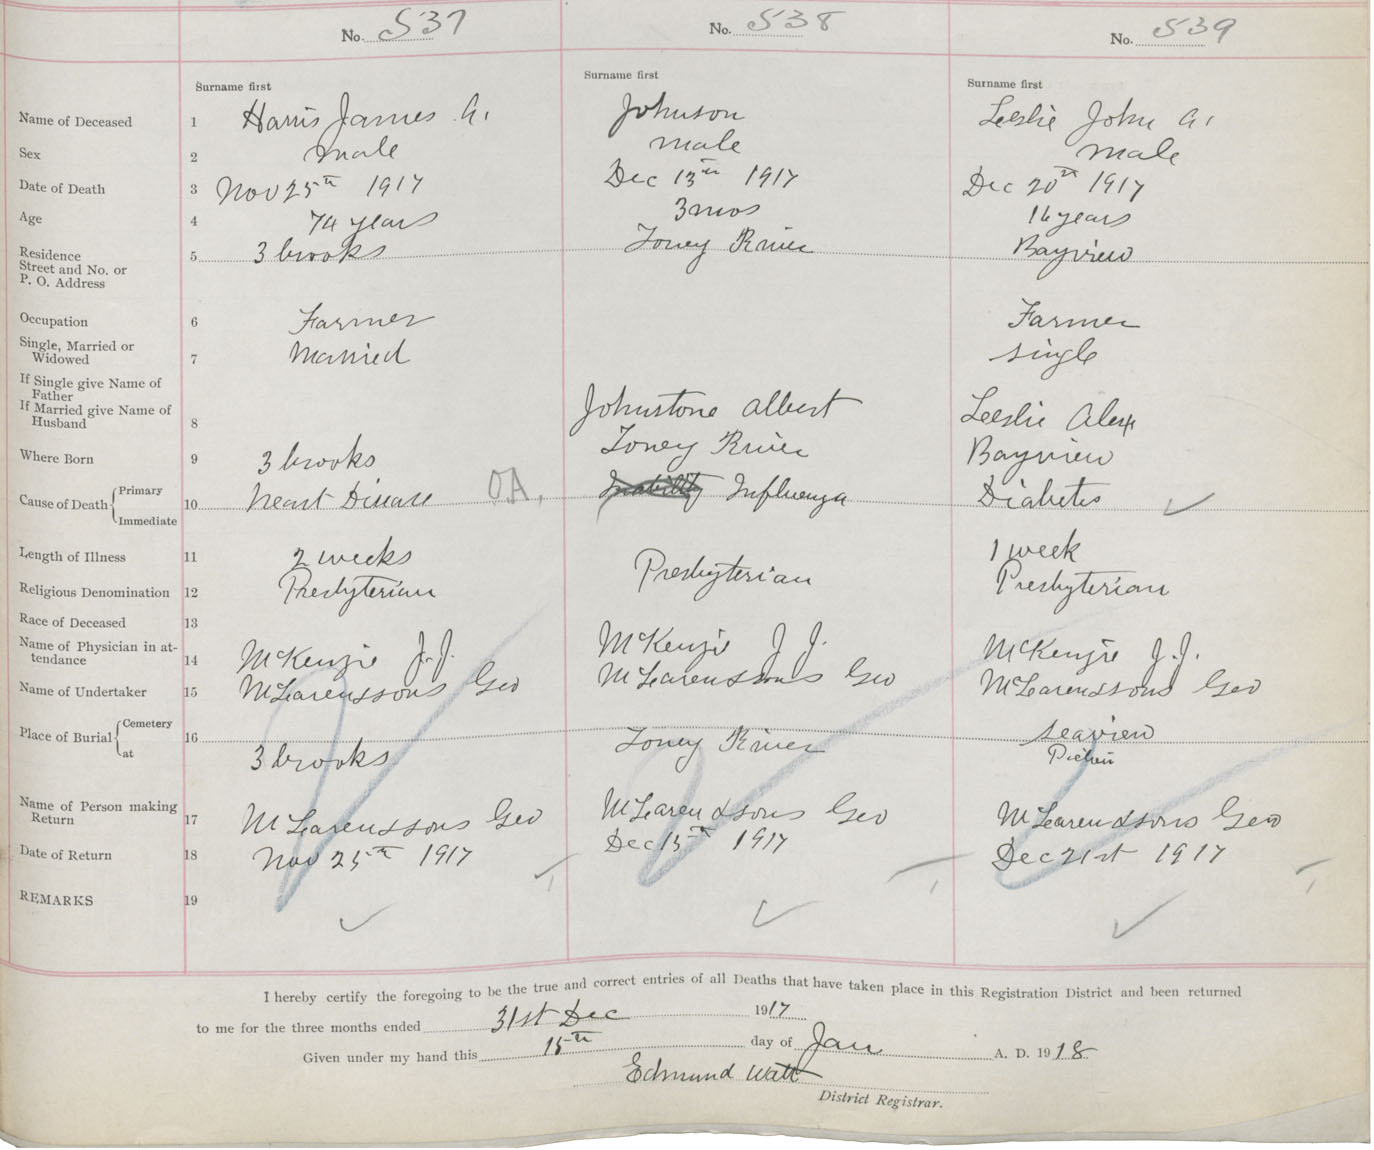 No. 537 No. 538 No. 539
Surname first Surname first Surname first
Name of Deceased 1 Harris James A. Johnson Leslie John A.
Sex 2 male male male
Date of Death 3 Nov 25th 1917 Dec 13th 1917 Dec 20th 1917
Age 4 74 years 3 mos 16 years
Residence 5 3 brooks Toney River Bayview
Street and No. or
P. O. Address
Occupation 6 Farmer Farmer
Single, Married or
Widowed 7 Married single
If Single give Name of
Father
If Married give Name of
Husband 8 Johnstone Albert Leeslie Alex
Where Born 9 3 brooks Toney River Bayview
Cause of Death Primary
Immediate 10 Heart Disease O.A. Influenza Diabetes
Length of Illness 11 2 weeks 1 week
Religious Denomination 12 Presbyterian Presbyterian Presbyterian
Race of Deceased 13
Name of Physician in at-
tendance 14 McKenzie J. J. McKenzie J J. McKenzie J. J.
Name of Undertaker 15 McLaren & sons Geo McLaren & sons Geo McLaren & sons Geo
Place of Burial Cemetery
at 16 3 brooks Toney River seaview
Pictou
Name of Person making
Return 17 McLaren & sons Geo McLaren & sons Geo McLaren & sons Geo
Date of Return 18 Nov 25th 1917 Dec 13th 1917 Dec 21st 1917
REMARKS 19
I hereby certify the foregoing to be the true and correct entries of all Deaths that have taken place in this Registration District and been returned
to me for the three months ended 31st Dec 1917
Given under my hand this 15th day of Jan A. D. 1918
Edmund Watt
District Registrar.